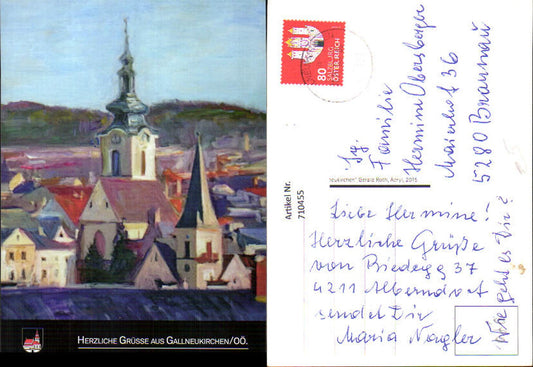 HERZLICHE GRÜSSE AUS GALLNEUKIRCHEN/OÖ.
80
SALZBURG
ÖSTERREICH
Familie
Hermine Obersberger
5280 Braunau
neukirchen" Gerald Roth, Acryl, 2015
Artikel Nr.
710455
Liebe Hermine!
Herzliche Grüße
von Riedegg 37
4211 Alberndorf
sendet Dir
Maria Nagler
Wie geht es Dir?